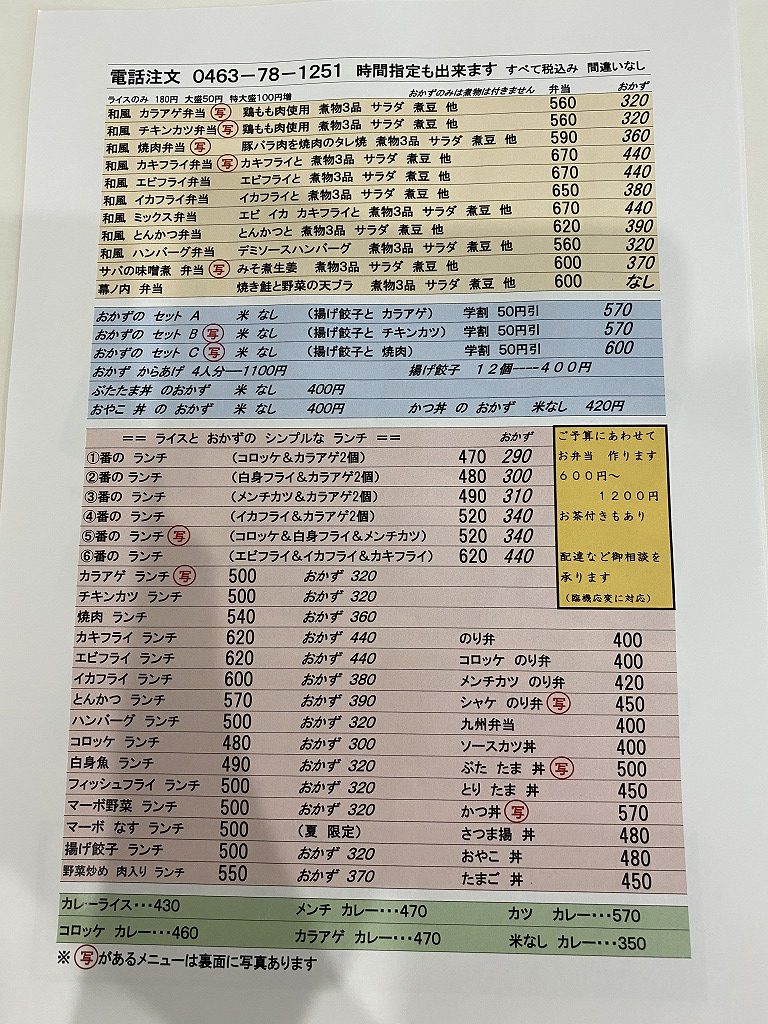 電話注文 0463-78-1251 時間指定も出来ます すべて税込み 間違いなし
ライスのみ 180円 大盛50円 特大盛100円増 おかずのみは煮物は付きません 弁当 おかず
和風 カラアゲ弁当 写 鶏もも肉使用 煮物3品 サラダ 煮豆 他 560 320
和風 チキンカツ弁当 写 鶏もも肉使用 煮物3品 サラダ 煮豆 他 560 320
和風 焼肉弁当 写 豚バラ肉を焼肉のタレ焼 煮物3品 サラダ 煮豆 他 590 360
和風 カキフライ弁当 写 カキフライと 煮物3品 サラダ 煮豆 他 670 440
和風 エビフライ弁当 エビフライと 煮物3品 サラダ 煮豆 他 670 440
和風 イカフライ弁当 イカフライと 煮物3品 サラダ 煮豆 他 650 380
和風 ミックス弁当 エビ イカ カキフライと 煮物3品 サラダ 煮豆 他 670 440
和風 とんかつ弁当 とんかつと 煮物3品 サラダ 煮豆 他 620 390
和風 ハンバーグ弁当 デミソースハンバーグ 煮物3品 サラダ 煮豆 他 560 320
サバの味噌煮 弁当 写 みそ煮生姜 煮物3品 サラダ 煮豆 他 600 370
幕ノ内 弁当 焼き鮭と野菜の天ブラ 煮物3品 サラダ 煮豆 他 600 なし
おかずの セット A 米 なし (揚げ餃子と カラアゲ) 学割 50円引 570
おかずの セット B 写 米 なし (揚げ餃子と チキンカツ) 学割 50円引 570
おかずの セット C 写 米 なし (揚げ餃子と 焼肉) 学割 50円引 600
おかず からあげ 4人分―1100円 揚げ餃子 12個----400円
ぶたたま丼 のおかず 米 なし 400円
おやこ 丼 の おかず 米 なし 400円 かつ丼 の おかず 米なし 420円
== ライスと おかずの シンプルな ランチ == おかず
①番の ランチ (コロッケ&カラアゲ2個) 470 290
②番の ランチ (白身フライ&カラアゲ2個) 480 300
③番の ランチ (メンチカツ&カラアゲ2個) 490 310
④番の ランチ (イカフライ&カラアゲ2個) 520 340
⑤番の ランチ 写 (コロッケ&白身フライ&メンチカツ) 520 340
⑥番の ランチ (エビフライ&イカフライ&カキフライ) 620 440
ご予算にあわせて
お弁当 作ります
600円~
1200円
お茶付きもあり
配達など御相談を
承ります
(臨機応変に対応)
カラアゲ ランチ 写 500 おかず 320
チキンカツ ランチ 500 おかず 320
焼肉 ランチ 540 おかず 360
カキフライ ランチ 620 おかず 440
エビフライ ランチ 620 おかず 440
イカフライ ランチ 600 おかず 380
とんかつ ランチ 570 おかず 390
ハンバーグ ランチ 500 おかず 320
コロッケ ランチ 480 おかず 300
白身魚 ランチ 490 おかず 320
フィッシュフライ ランチ 500 おかず 320
マーボ野菜 ランチ 500 おかず 320
マーボ なす ランチ 500 (夏 限定)
揚げ餃子 ランチ 500 おかず 320
野菜炒め 肉入り ランチ 550 おかず 370
のり弁 400
コロッケ のり弁 400
メンチカツ のり弁 420
シャケ のり弁 写 450
九州弁当 400
ソースカツ丼 400
ぶた たま 丼 写 500
とり たま 丼 450
かつ丼 写 570
さつま揚 丼 480
おやこ 丼 480
たまご 丼 450
カレーライス・・・430 メンチ カレー・・・470 カツ カレー・・・570
コロッケ カレー・・・460 カラアゲ カレー・・・470 米なし カレー・・・350
※ 写 があるメニューは裏面に写真あります